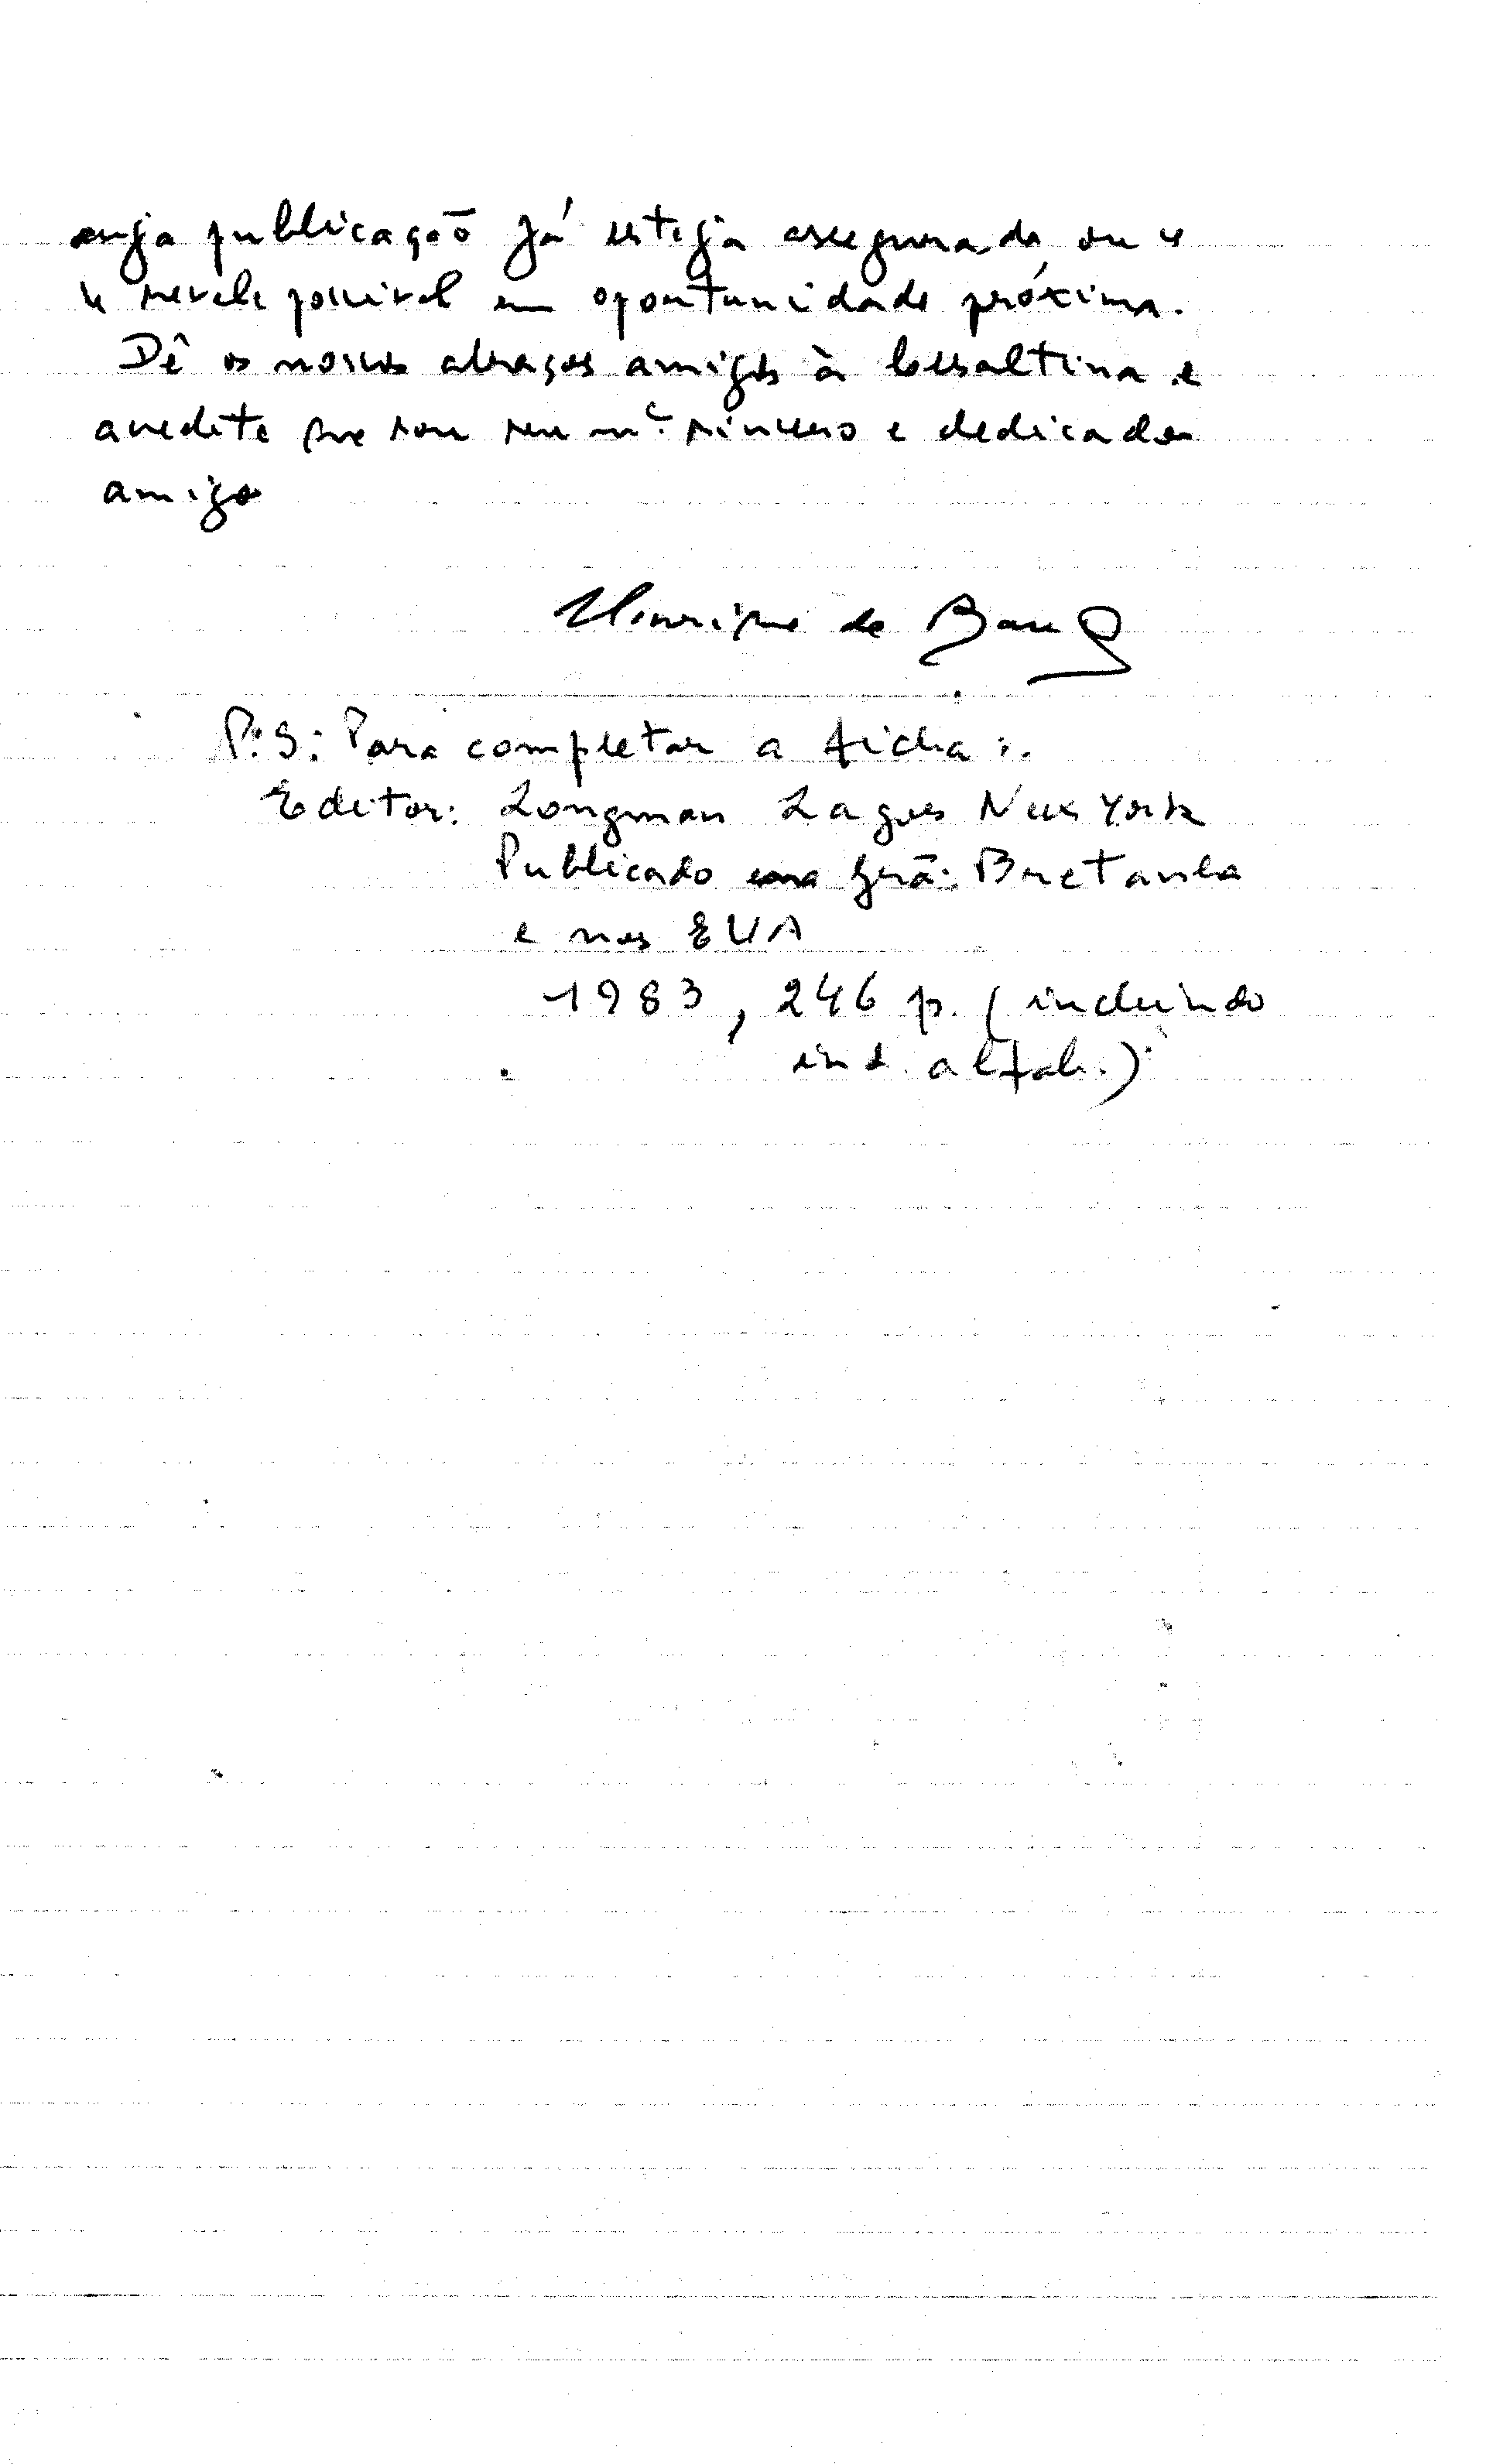 cuja publicação já esteja assegurada ou q
se revele possível em oportunidade próxima.
Dê os nossos abraços amigos à Cesaltina e
acredite que sou seu mᵗº sincero e dedicado
amigo
Henrique de Barros
P.S: Para completar a ficha:
Editor: Longman Lagos New York
Publicado na Grã-Bretanha
e nos EUA
1983, 246 p. (incluindo
ind. alfab.)